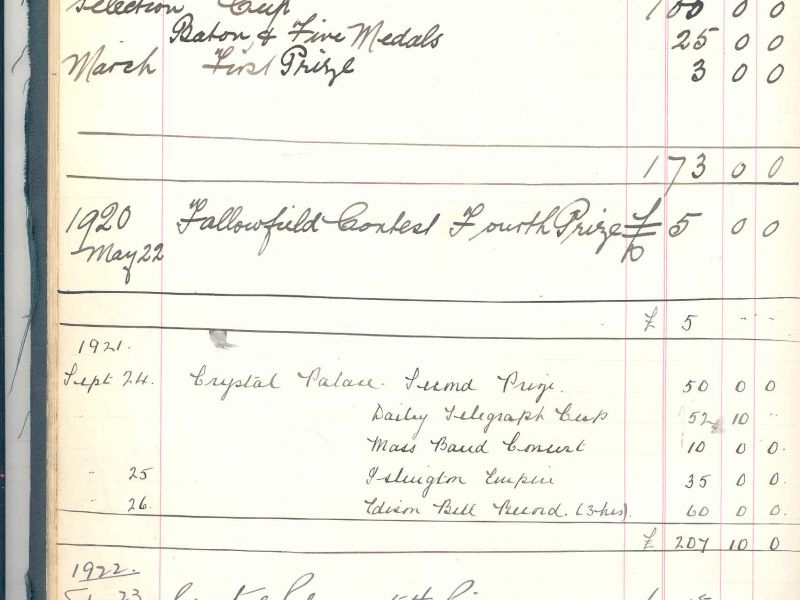 Selection Cup 100 0 0
Baton & Five Medals 25 0 0
March First Prize 3 0 0
173 0 0
1920 Fallowfield Contest Fourth Prize £ 5 0 0
May 22
£ 5 - -
1921.
Sept 24. Crystal Palace. Second Prize. 50 0 0
Dailey Telegraph Cup 52 10 -
Mass Band Consert 10 0 0.
" 25 Islington Empire 35 0 0
" 26. Edison Bell Record. (3 hrs). 60 0 0.
£ 207 10 0
1922.
23